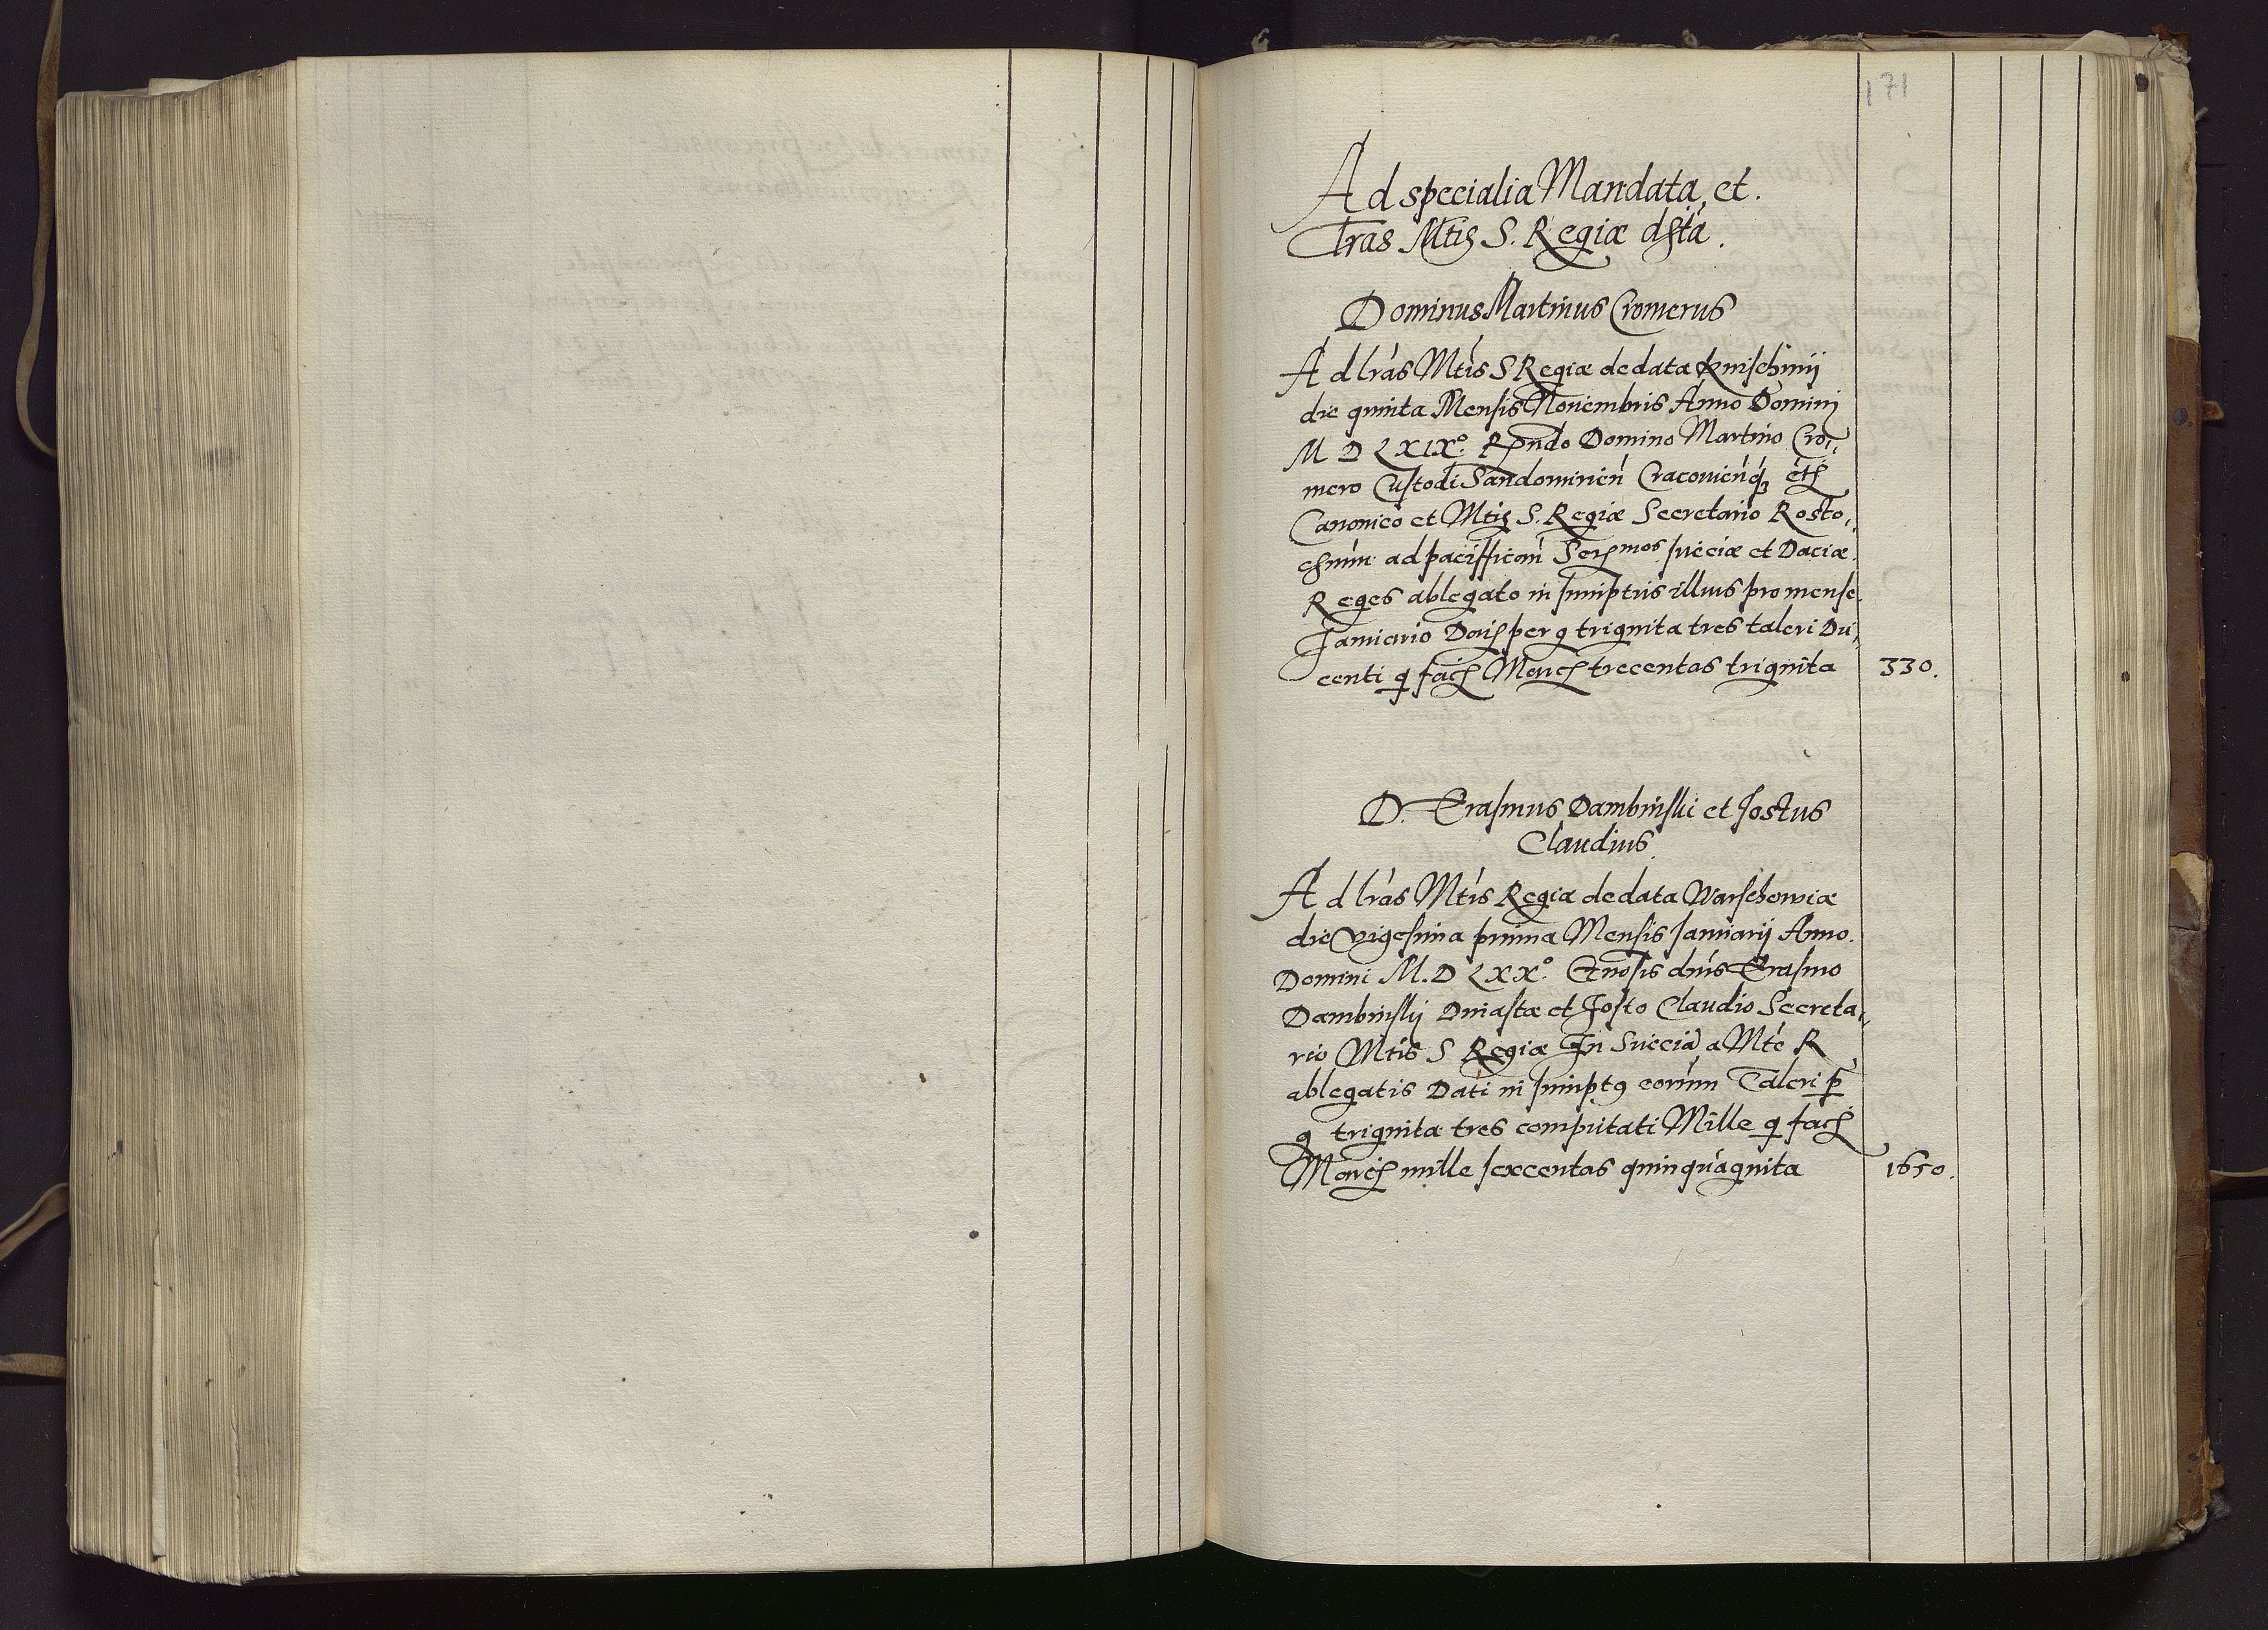 171
Ad specialia Mandata, et.
Lras Mtis S. Regiæ dsta.
Dominus Martinus Cromerus
Ad lras Mtis S Regiæ de data Knischinij
die quinta Mensis Nouembris Anno Domini
M D LXIX°. Rndo Domino Martino Cro,,
mero Custodi Sandominien Cracouienq3 etc
Canonico et Mtis S. Regiæ Secretario Rosto,,
chium ad pacifficam Sermos Sueciæ et Daciæ.
Reges ablegato in sumptus illius pro mense.
Januario Dati per g triginta tres taleri Du,,
centi q fac Marc trecentas triginta
330.
D. Erasmus Dambinski et Jostus
Claudius.
Ad lras Mtis Regiæ de data Warschowiæ
die vigesima prima Mensis Januarij Anno.
Domini M.D LXX°. Gnosis dnis Erasmo
Dambinskij et Josto Claudio Secreta,,
rio Mtis S Regiæ In Sueciã a Mte R
ablegatis Dati in sumptus eorum Taleri p
g triginta tres computati Mille q fac
Marc mille sexcentas quinquaginta
1650.